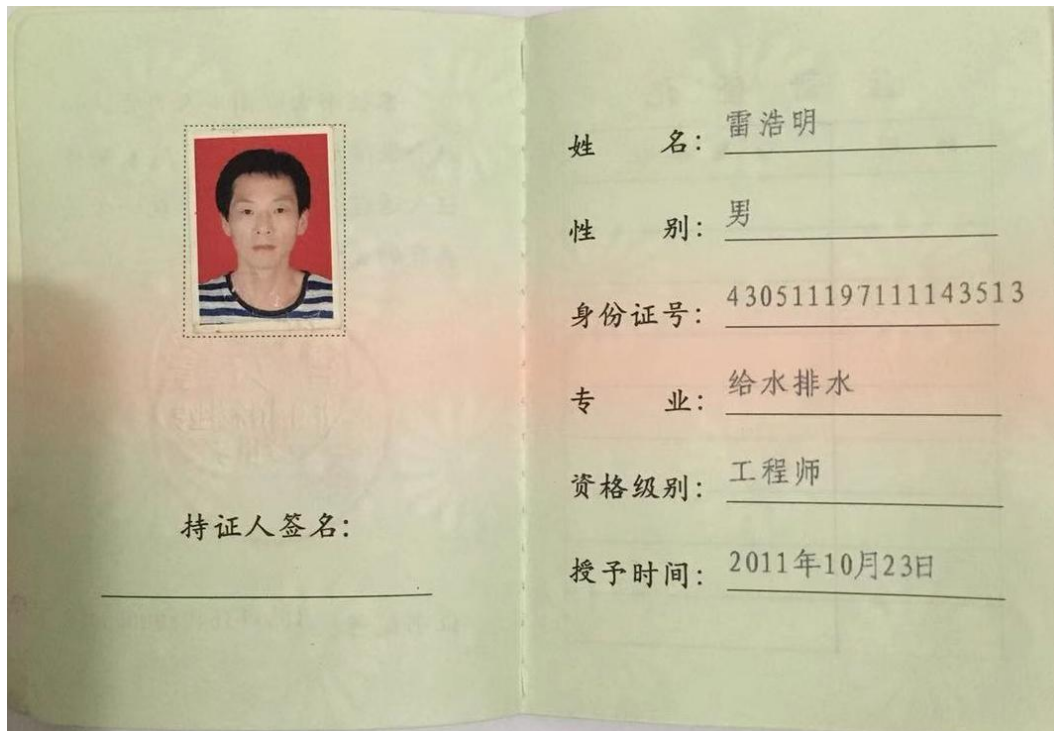 持证人签名：
姓名：雷浩明
性别：男
身份证号：430511197111143513
专业：给水排水
资格级别：工程师
授予时间：2011年10月23日